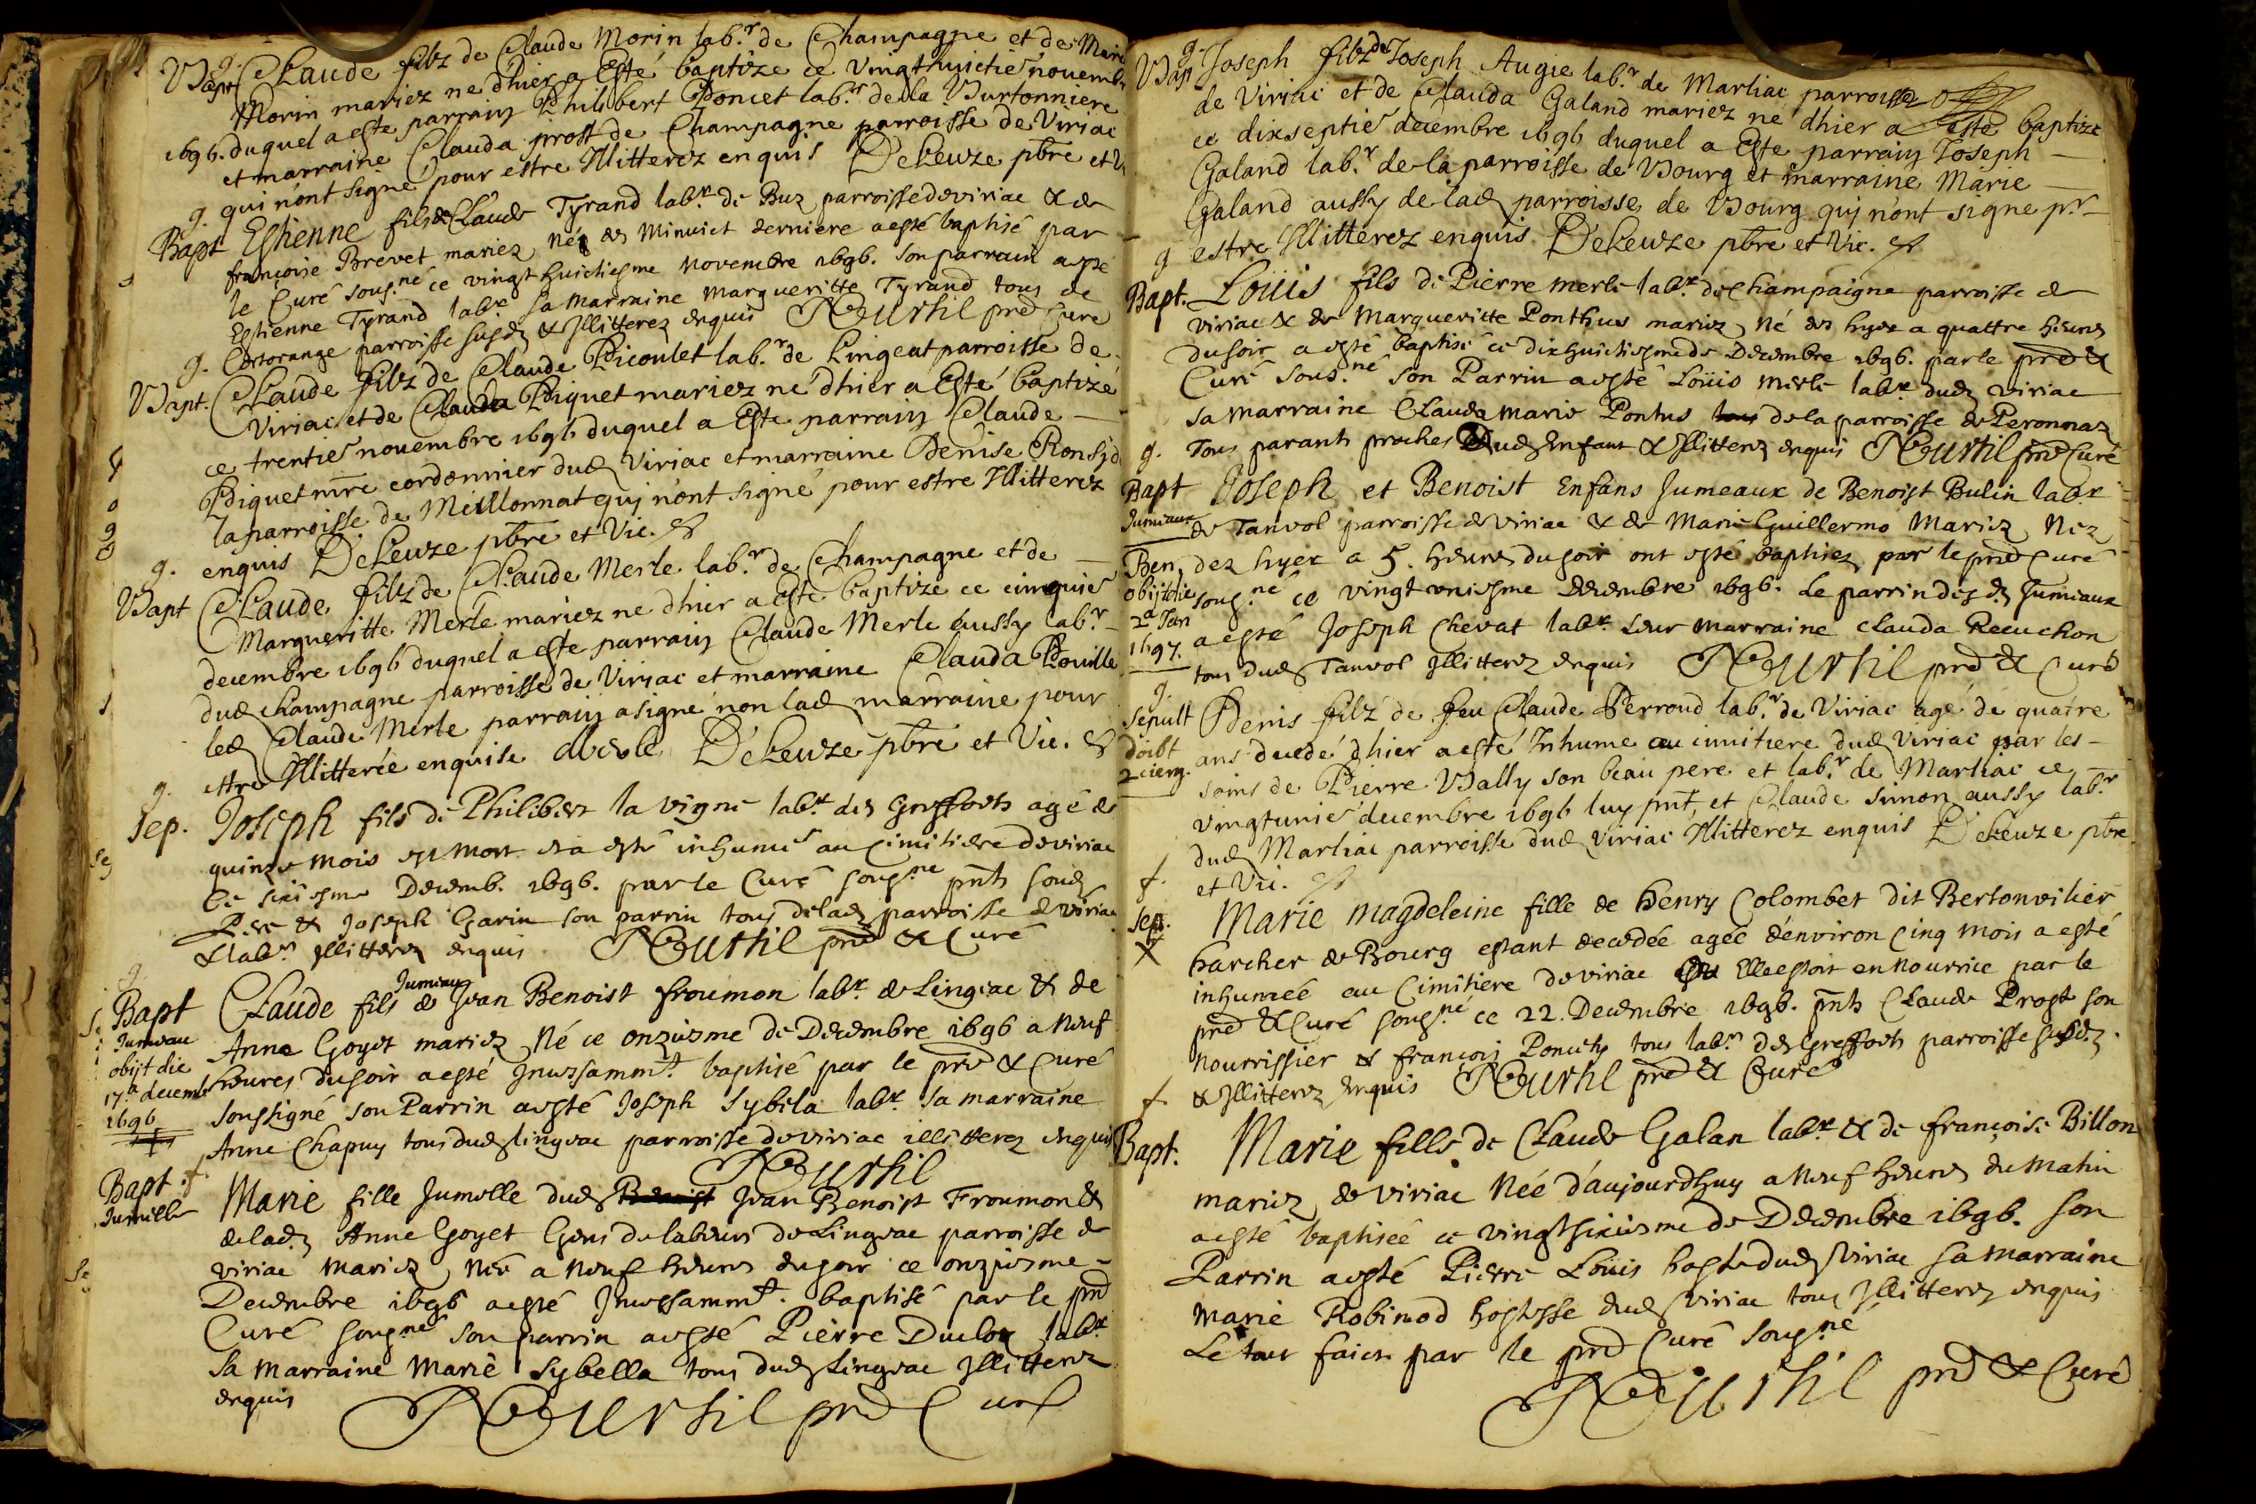 Bapt Claude filz de Claude Morin lab.r de Champagne et de Marie
Morin mariez ne dhier a Esté baptize ce vingt huictie novembre
1696. duquel a este parrain Philibert Poncet lab.r de la Burtonniere
et marraine Clauda prost de Champagne parroisse de Viriac
qui n'ont signé pour estre Illitterez enquis DeLeuze pbre et V
g. Bapt Estienne fils de Claude Tyrand lab.r de Buz parroisse de viriac & de
françoise Brevet mariez né de Minuict derniere a esté baptisé par
le Curé sousg.né ce vingt huictiesme Novembre 1696. son parrain a esté
Estienne Tyrand lab.r sa marraine margueritte Tyrand tous de
Certorange parroisse susd. & Illitterez enquis Courtil prb Curé
g. Bapt. Claude filz de Claude Picoulet lab.r de Lingeat parroisse de
Viriac et de Clauda Piquet mariez né dhier a Esté baptizé
ce trentie novembre 1696 duquel a Este parrain Claude
Piquet mre cordonnier dud Viriac et marraine Denise
la parroisse de Meillonnat quj n'ont signé pour estre Illitterez
enquis DeLeuze pbre et Vic.
g. Bapt Claude filz de Claude Merle lab.r de Champagne et de
Margueritte Merle mariez ne dhier a este baptize ce cinquie
decembre 1696 duquel a este parrain Claude Merle aussy lab.r
dud Champagne parroisse de Viriac et marraine Clauda Pouille
led Claude Merle parrain a signé non lad marraine pour
ettre Illitterée enquise Merle DeLeuze pbre et Vic.
g. Sep. Joseph fils de Philibert la vigne lab.r des Greffets agé de
quinze mois est mort et a esté inhumé au Cimitiere de viriac
Ce sixiesme Decemb. 1696. par le Curé sousg.ne pnts soud
Pere & Joseph Garin son parrin tous de lad parroisse de viriac
& lab.rs Illitterez enquis Courtil prb & Curé
Bapt Jumeau Claude fils Jumeau de Jean Benoist froumon lab.r de Lingeac & de
obijt die Anne Goyet mariez Né ce onziesme de Decembre 1696 a Neuf
17.a decemb heures du soir a esté Incessamm.t baptisé par le prb & Curé
1696 soussigné son Parrin a esté Joseph Sybila lab.r sa marraine
Anne Chapuy tous dud Lingeac parroisse de viriac illitterez enquis
Courtil
Bapt. Jumelle Marie fille Jumelle dud Jean Benoist Froumon &
de lad. Anne Goyet Gens de labeurs de Lingeac parroisse de
viriac mariez Née a Neuf heures du soir ce onziesme
Decembre 1696 a esté Incessamm.t baptisé par le prb
Curé sousg.né son parrin a esté Pierre Duclos lab.r
sa marraine Marie Sybella tous dud Lingeac Illitterez
enquis Courtil prb Curé
g. Bap Joseph filz de Joseph Augie lab.r de Marliac parroisse
de Viriac et de Clauda Galand mariez né dhier a esté baptizé
ce dixseptie decembre 1696 duquel a Este parrain Joseph
Galand lab.r de la parroisse de Bourg et marraine Marie
Galand aussy de lad parroisse de Bourg quj n'ont signe p.r
estre Illitterez enquis DeLeuze pbre et Vic.
g Bapt. Loüis fils de Pierre merle lab.r de Champaigne parroisse de
viriac & de Margueritte Ponthus mariez né des hyer a quattre heures
du soir a esté baptisé ce dixhuictiesme de Decembre 1696. par le prb &
Curé sous.né son Parrin a esté Loüis merle lab.r dud viriac
sa marraine Clauda marie Pontus de la parroisse de Peronnaz
g. Tous parants proches dud Enfant & Illitterez enquis Courtil prb Curé
Bapt Jumeaux Joseph et Benoist Enfans Jumeaux de Benoist Bulin lab.r
de Tanvol parroisse de viriac & de Marie Guillermo Mariez Nez
Ben. dez hyer a 5. heures du soir ont esté baptisez par le prb Curé
obijt die sousg.né ce vingt uniesme Decembre 1696. Le parrin des d. Jumeaux
2a Jan 1697. a esté Joseph Chevat lab.r Leur marraine Clauda Recuchon
tous dud Tanvol Illitterez enquis Courtil prb & Curé
g. Sepult Denis filz de feu Claude Perroud lab.r de Viriac agé de quatre
doibt ans decedé dhier a esté Inhume au cimitiere dud Viriac par les
2 cierg. soins de Pierre Vally son beau pere et lab.r de Marliac ce
vingtunie decembre 1696 luy pnt, et Claude simon aussy lab.r
dud Marliac parroisse dud Viriac Illitterez enquis DeLeuze pbre
et Vic.
f. Sep. Marie magdeleine fille de henry Colombet dit Bertonvilier
harcher de Bourg estant decedée agée d'environ Cinq mois a esté
inhumeé au Cimitiere de viriac Ou Elle estoit en Nourrice par le
prb & Curé sousg.né ce 22. Decembre 1696. pnts Claude Prost son
Nourrissier & françois Poncety tous lab.rs des Greffets parroisse susd.
& Illitterez enquis Courtil prb & Curé
f. Bapt. Marie fille de Claude Galan lab.r & de françoise Billon
mariez de viriac Née d'aujourdhuy a Neuf heures du Matin
a esté baptiseé ce vingt sixiesme de Decembre 1696. son
Parrin a esté Pierre Loüis hoste dud viriac sa marraine
Marie Robinod hostesse dud viriac tous Illitterez enquis
Le tout faict par le prb Curé sousg.né
Courtil prb & Curé